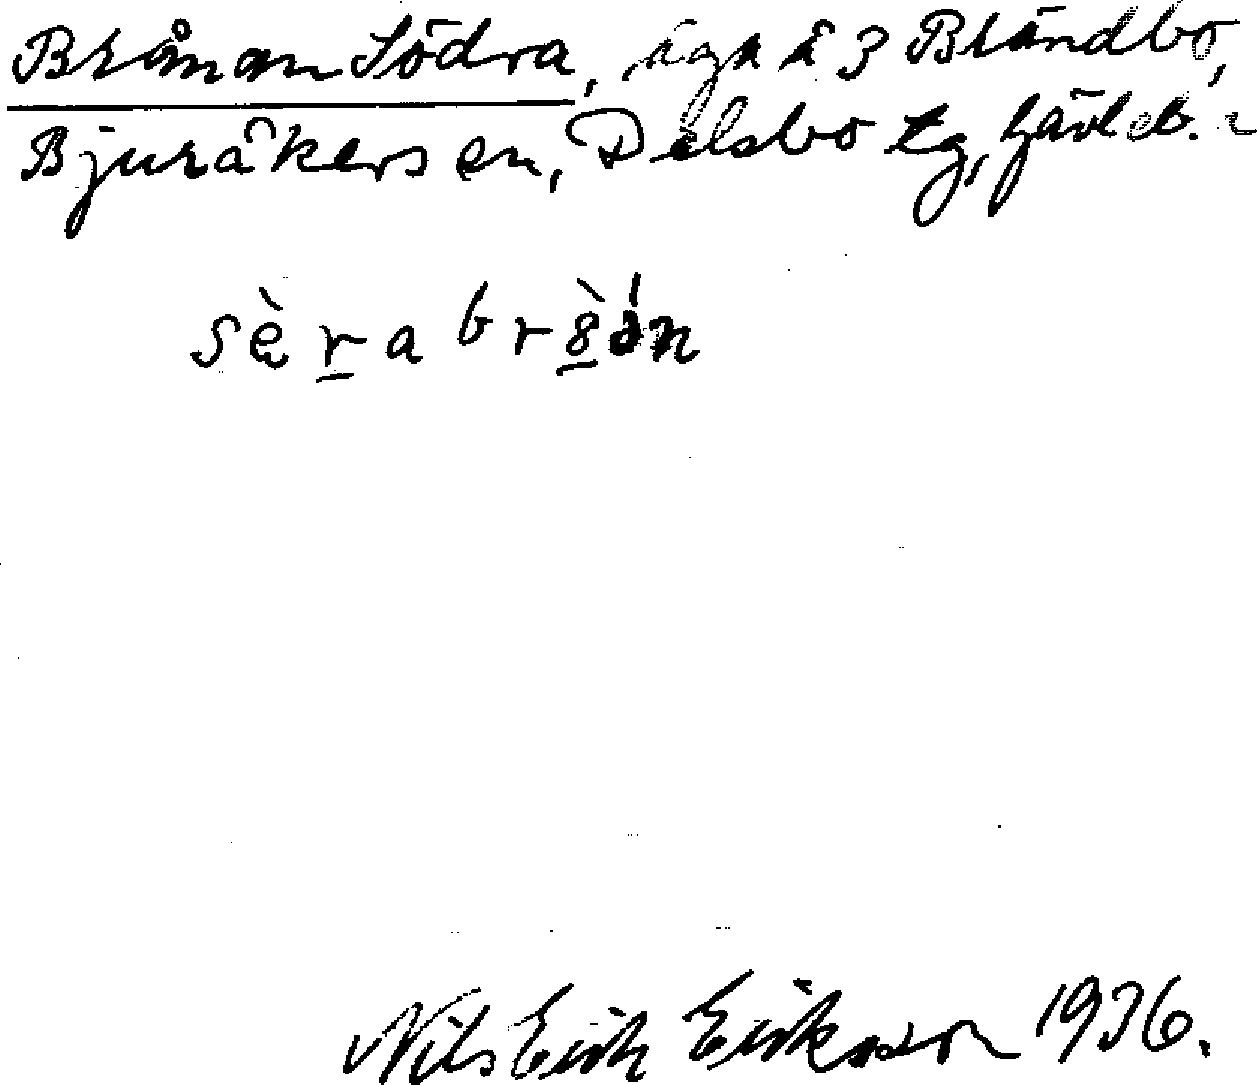 Bråman Södra, äga å 3 Brändbo,
Bjuråkers sn, Delsbo tg, Gävleb. l
sèrabrån
Nils Erik Eriksson 1936.